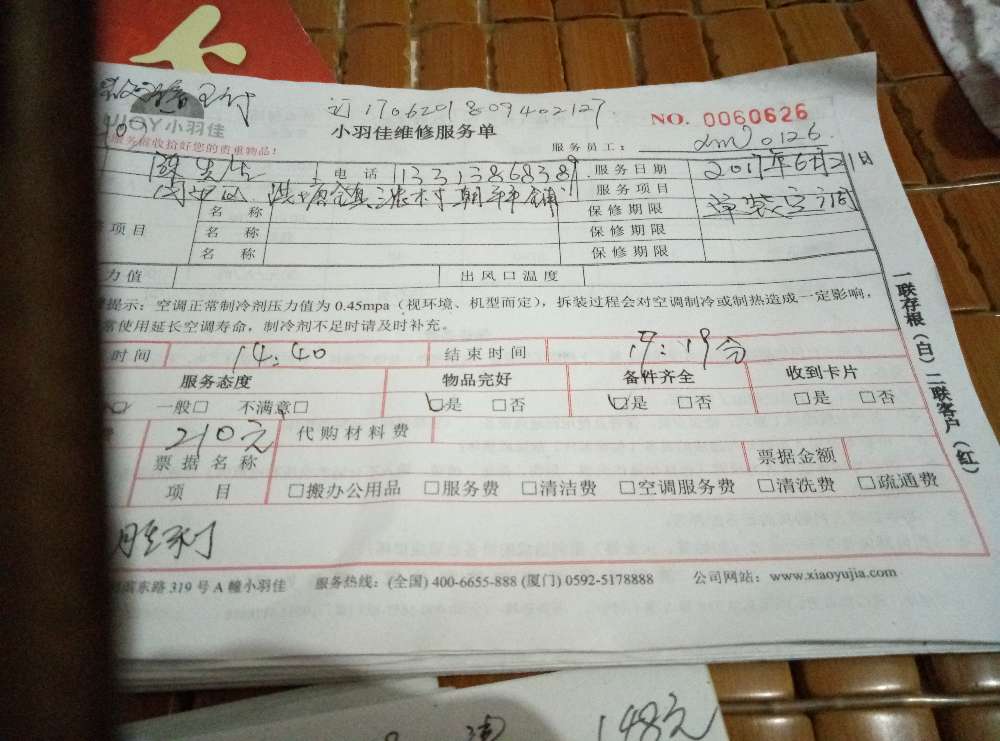 订1706201809402127
NO. 0060626
小羽佳
小羽佳维修服务单
服务员工： dm0126
服务前收拾好您的贵重物品！
陈先生 电话 13313868389 服务日期 2017年6月21日
洪塘镇三浪村朝 铺 服务项目
名 称 保修期限
项目 名 称 保修期限
名 称 保修期限
力值 出风口温度
提示：空调正常制冷剂压力值为 0.45mpa（视环境、机型而定），拆装过程会对空调制冷或制热造成一定影响，
常使用延长空调寿命，制冷剂不足时请及时补充。
时间 14:40 结束时间 19:19分
服务态度 物品完好 备件齐全 收到卡片
一般□ 不满意□ □是 □否 □是 □否 □是 □否
210元 代购材料费
票据名称 票据金额
项 目 □搬办公用品 □服务费 □清洁费 □空调服务费 □清洗费 □疏通费
胜利
东路 319 号 A 幢小羽佳 服务热线：(全国) 400-6655-888 (厦门) 0592-5178888 公司网站：www.xiaoyujia.com
一联存根（白）二联客户（红）
148元